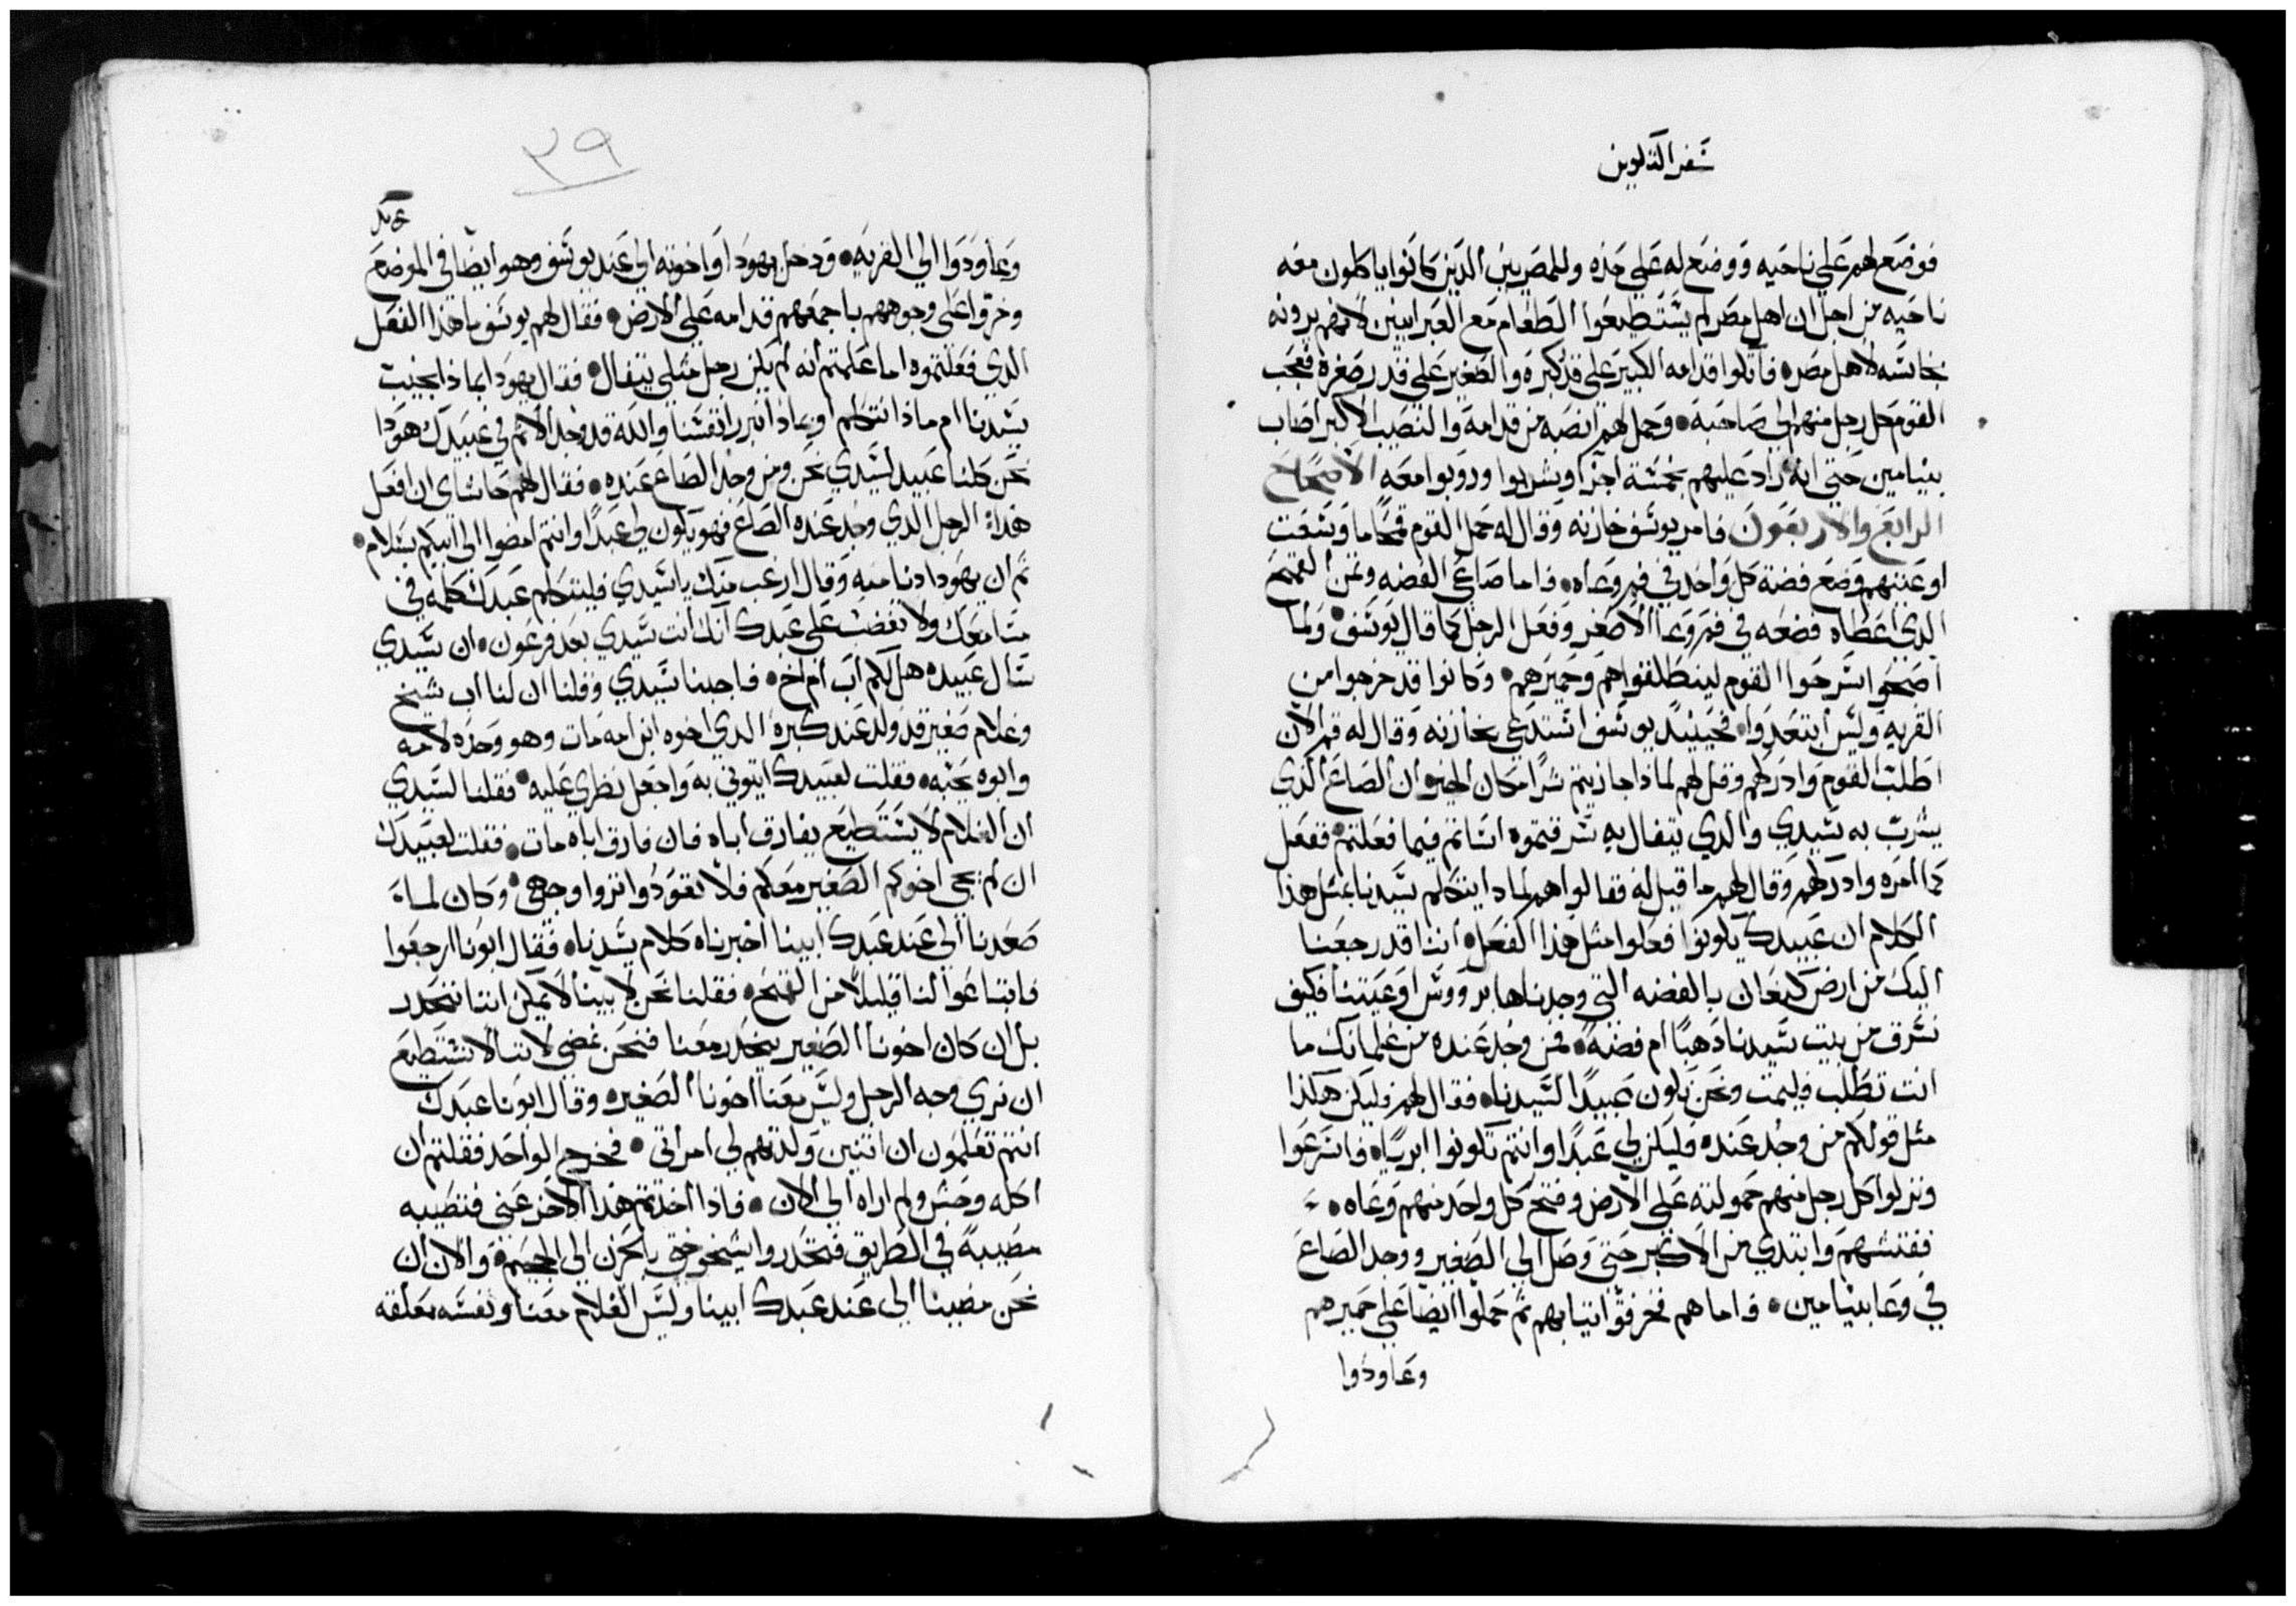 سفر التكوين
فوضع لهم على ناحيه ووضع له على حده وللمصريين الدين كانوا ياكلون معه
ناحيه من اجل ان اهل مصر لم يستطيعوا الطعام مع العبرانيين لانهم يرونه
نجاسه لاهل مصر فاتكوا قدامه الكبير على قدر كبره والصغير على قدر صغره فعجب
القوم كل رجل منهم الى صاحبه وحمل لهم انصبه من قدامه والنصيب الاكبر اصاب
بنيامين حتي انه زاد عليهم بخمسة اجزا وشربوا ورويوا معه الاصحاح
الرابع والاربعون فامر يوسف خازنه وقال له حمل القوم قمحا ما وسعت
اوعيتهم وضع فضة كل واحد في فم وعاه فاما صاعي الفضه وثمن القمح
الدي اعطاه فضعه في فم وعا الاصغر وفعل الرجل كما قال يوسف ولما
اصبحوا اسرحوا القوم لينطلقوا هم وحميرهم وكانوا قد خرجوا من
القريه وليس ابتعدوا فحينيد يوسف استدعي بخازنه وقال له قم الان
اطلب القوم وادركهم وقل لهم لماذا جازيتم شرا مكان الخير ان الصاع الذي
يشرب به سيدي والدي يتفال به سرقتموه اساتم فيما فعلتم ففعل
كما امره وادركهم وقال لهم ما قيل له فقالوا هم لمادا يتكلم سيدنا بمثل هذا
الكلام ان عبيدك يكونوا فعلوا مثل هذا الفعل اننا قد رجعنا
اليك من ارض كنعان بالفضه التي وجدناها بروس اوعيتنا فكيف
نسرق من بيت سيدنا دهبا ام فضه فمن وجد عنده من غلمانك ما
انت تطلب فليمت ونحن نكون عبيدا لسيدنا فقال لهم فليكن هكذا
مثل قولكم من وجد عنده فليكن لي عبدا وانتم تكونوا ابرياه فاسرعوا
ونزلوا كل رجل منهم حمولته على الارض وفتح كل واحد منهم وعاه
ففتشهم وابتدي من الاكبر حتي وصل الي الصغير ووجد الصاع
في وعا بنيامين فاما هم فخرقوا ثيابهم ثم حملوا ايضا على حميرهم
وعاودوا
٣٩
وعاودوا الي القريه ودخل يهودا واخوته الى عند يوسف وهو ايضا في الموضع
وخروا على وجوههم باجمعهم قدامه علي الارض فقال لهم يوسف ما هذا الفعل
الدي فعلتموه اما علمتم انه لم يكن رجل مثلي يتفال فقال يهودا بماذا نجيب
سيدنا ام ماذا نتكلم او بماذا نبرر انفسنا والله قد وجد الاثم في عبيدك هوذا
نحن كلنا عبيد لسيدي نحن ومن وجد الصاع عنده فقال لهم حاشاي ان افعل
هذا الرجل الدي وجد عنده الصاع فهو يكون لي عبدا وانتم امضوا الى ابيكم بسلام
ثم ان يهودا دنا منه وقال ارغب منك يا سيدي فليتكلم عبدك كلمه في
مسامعك ولا تغضب على عبدك انك انت سيدي بعد فرعون ان سيدي
سال عبيده هل لكم اب ام اخ فاجبنا سيدي وقلنا ان لنا اب شيخ
وغلام صغير قد ولد عند كبره الدي اخوه ابن امه مات وهو وحده لامه
وابوه يحبه فقلت لعبيدك ايتوني به واجعل نظري عليه فقلنا لسيدي
ان الغلام لا يستطيع يفارق اباه فان فارق اباه مات فقلت لعبيدك
ان لم يجي اخوكم الصغير معكم فلا تعودوا تروا وجهي وكان لما
صعدنا الي عند عبدك ابينا اخبرناه كلام سيدنا فقال ابونا ارجعوا
فابتاعوا لنا قليلا من القمح فقلنا نحن لابينا لا يمكن اننا ننحدر
بل ان كان اخونا الصغير ينحدر معنا فنحن نمضي لاننا لا نستطيع
ان نري وجه الرجل وليس معنا اخونا الصغير وقال ابونا عبدك
انتم تعلمون ان اثنين ولدتهم لي امراتي فخرج الواحد فقلتم ان
اكله وحش ولم اراه الي الان فاذا اخذتم هذا الاخر عني فتصيبه
مصيبة في الطريق فتحدروا شيخوختي بالحزن الي الجحيم والان ان
نحن مضينا الي عند عبدك ابينا وليس الغلام معنا ونفسه معلقه